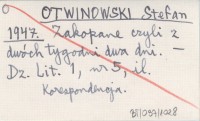 OTWINOWSKI Stefan
1947. Zakopane czyli z
dwóch tygodni dwa dni. –
Dz. Lit. 1, nr 5, il.
Korespondencja.